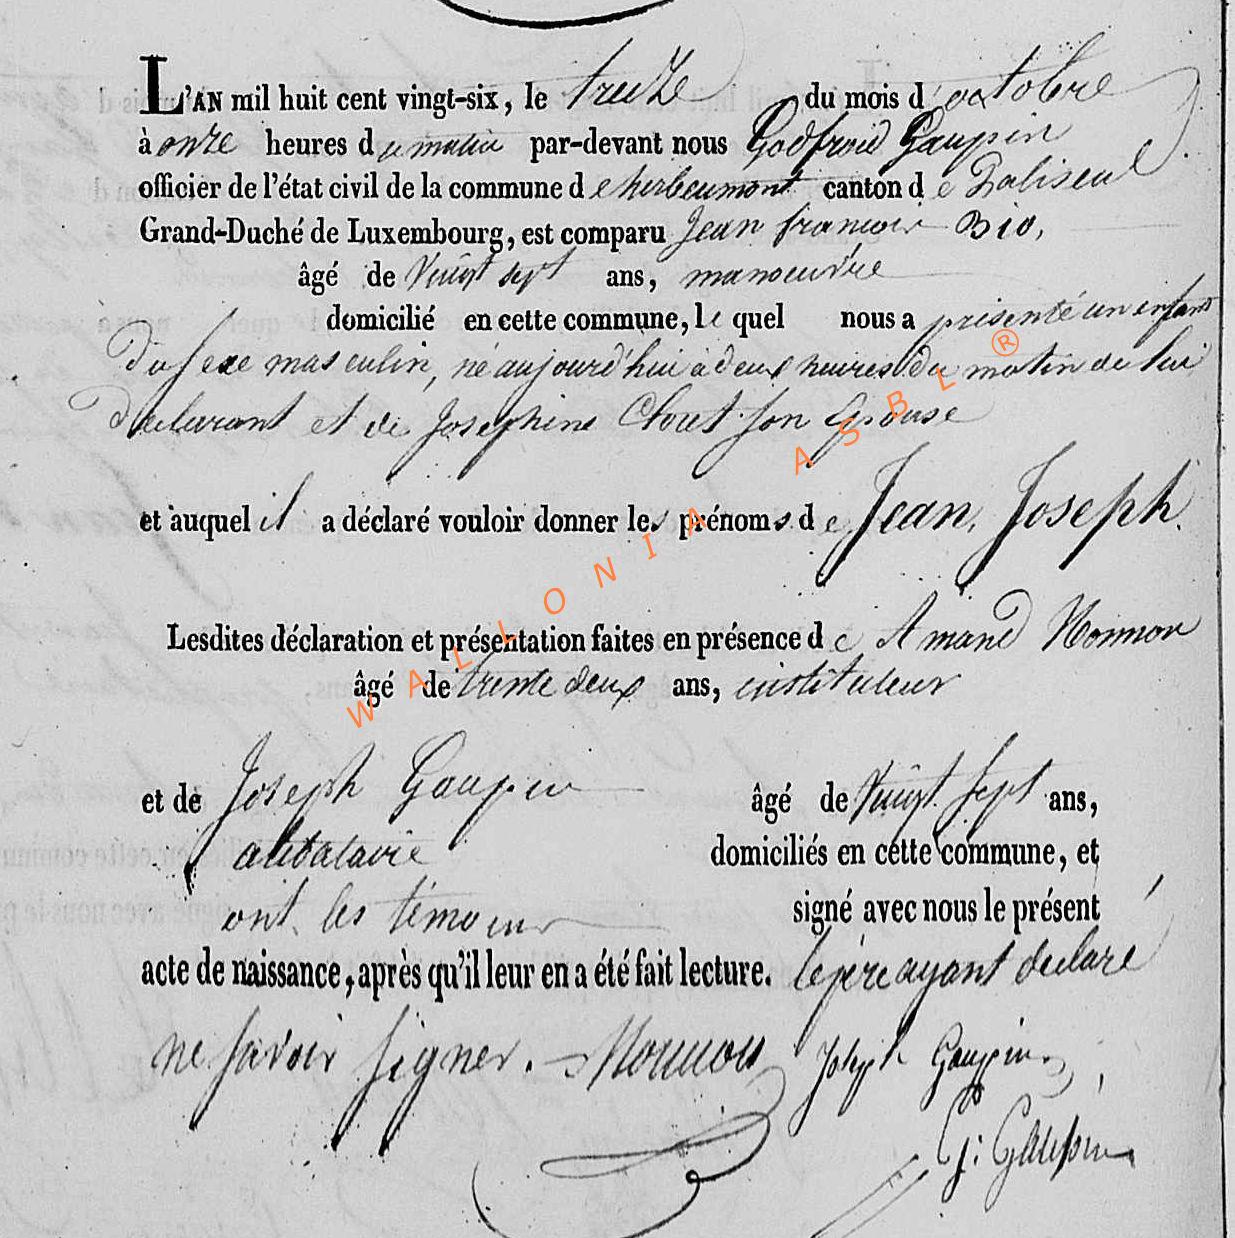 L'AN mil huit cent vingt-six, le treize du mois d'octobre
à onze heures du matin par-devant nous Godfroid Gaupin
officier de l'état civil de la commune de herbeumont canton de Paliseul
Grand-Duché de Luxembourg, est comparu Jean francois Bio,
âgé de Vingt sept ans, manoeuvre
domicilié en cette commune, le quel nous a présenté un enfant
du sexe masculin, né aujourd'hui à deux heures du matin de lui
declarant et de Josephine Clout son Epouse
et auquel il a déclaré vouloir donner les prénoms de Jean, Joseph.
Lesdites déclaration et présentation faites en présence de Amand
âgé de trente deux ans, instituteur
et de Joseph Gaupin âgé de Vingt sept ans,
domiciliés en cette commune, et
ont les témoins signé avec nous le présent
acte de naissance, après qu'il leur en a été fait lecture. le père ayant declaré
ne savoir signer. Joseph Gaupin
G: Gaupin
WALLONIA ASBL ®